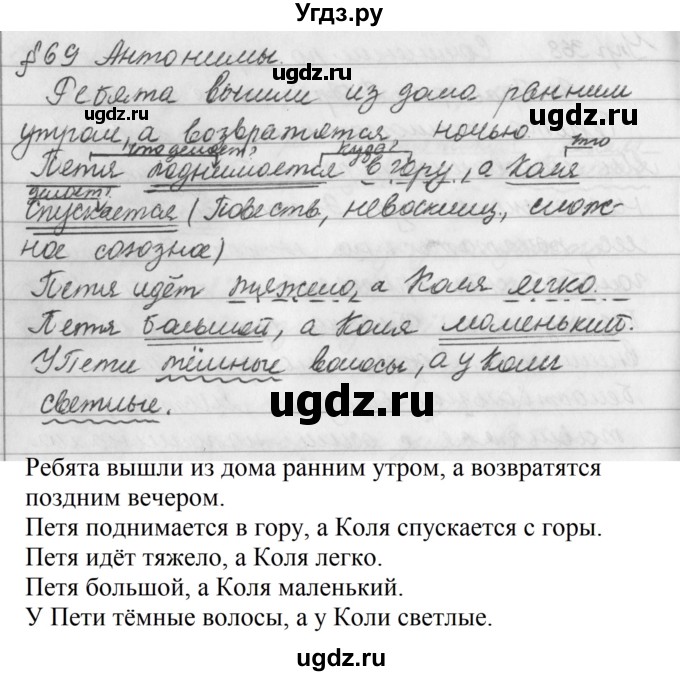 Угдз.ру
§69 Антонимы.
ugdz.ru
Ребята вышли из дома ранним
ugdz.ru
утром, а возвратятся ночью
что делает? куда? что
Петя поднимается в гору, а Коля
делает?
спускается (Повеств, невосклиц, слож-
ugdz.ru
ное союзное)
Петя идёт тяжело, а Коля легко.
Петя большой, а Коля маленький.
У Пети тёмные волосы, а у Коли
ugdz.ru
светлые.
Ребята вышли из дома ранним утром, а возвратятся
поздним вечером.
Петя поднимается в гору, а Коля спускается с горы.
Петя идёт тяжело, а Коля легко.
Петя большой, а Коля маленький.
У Пети тёмные волосы, а у Коли светлые.
ugdz.ru